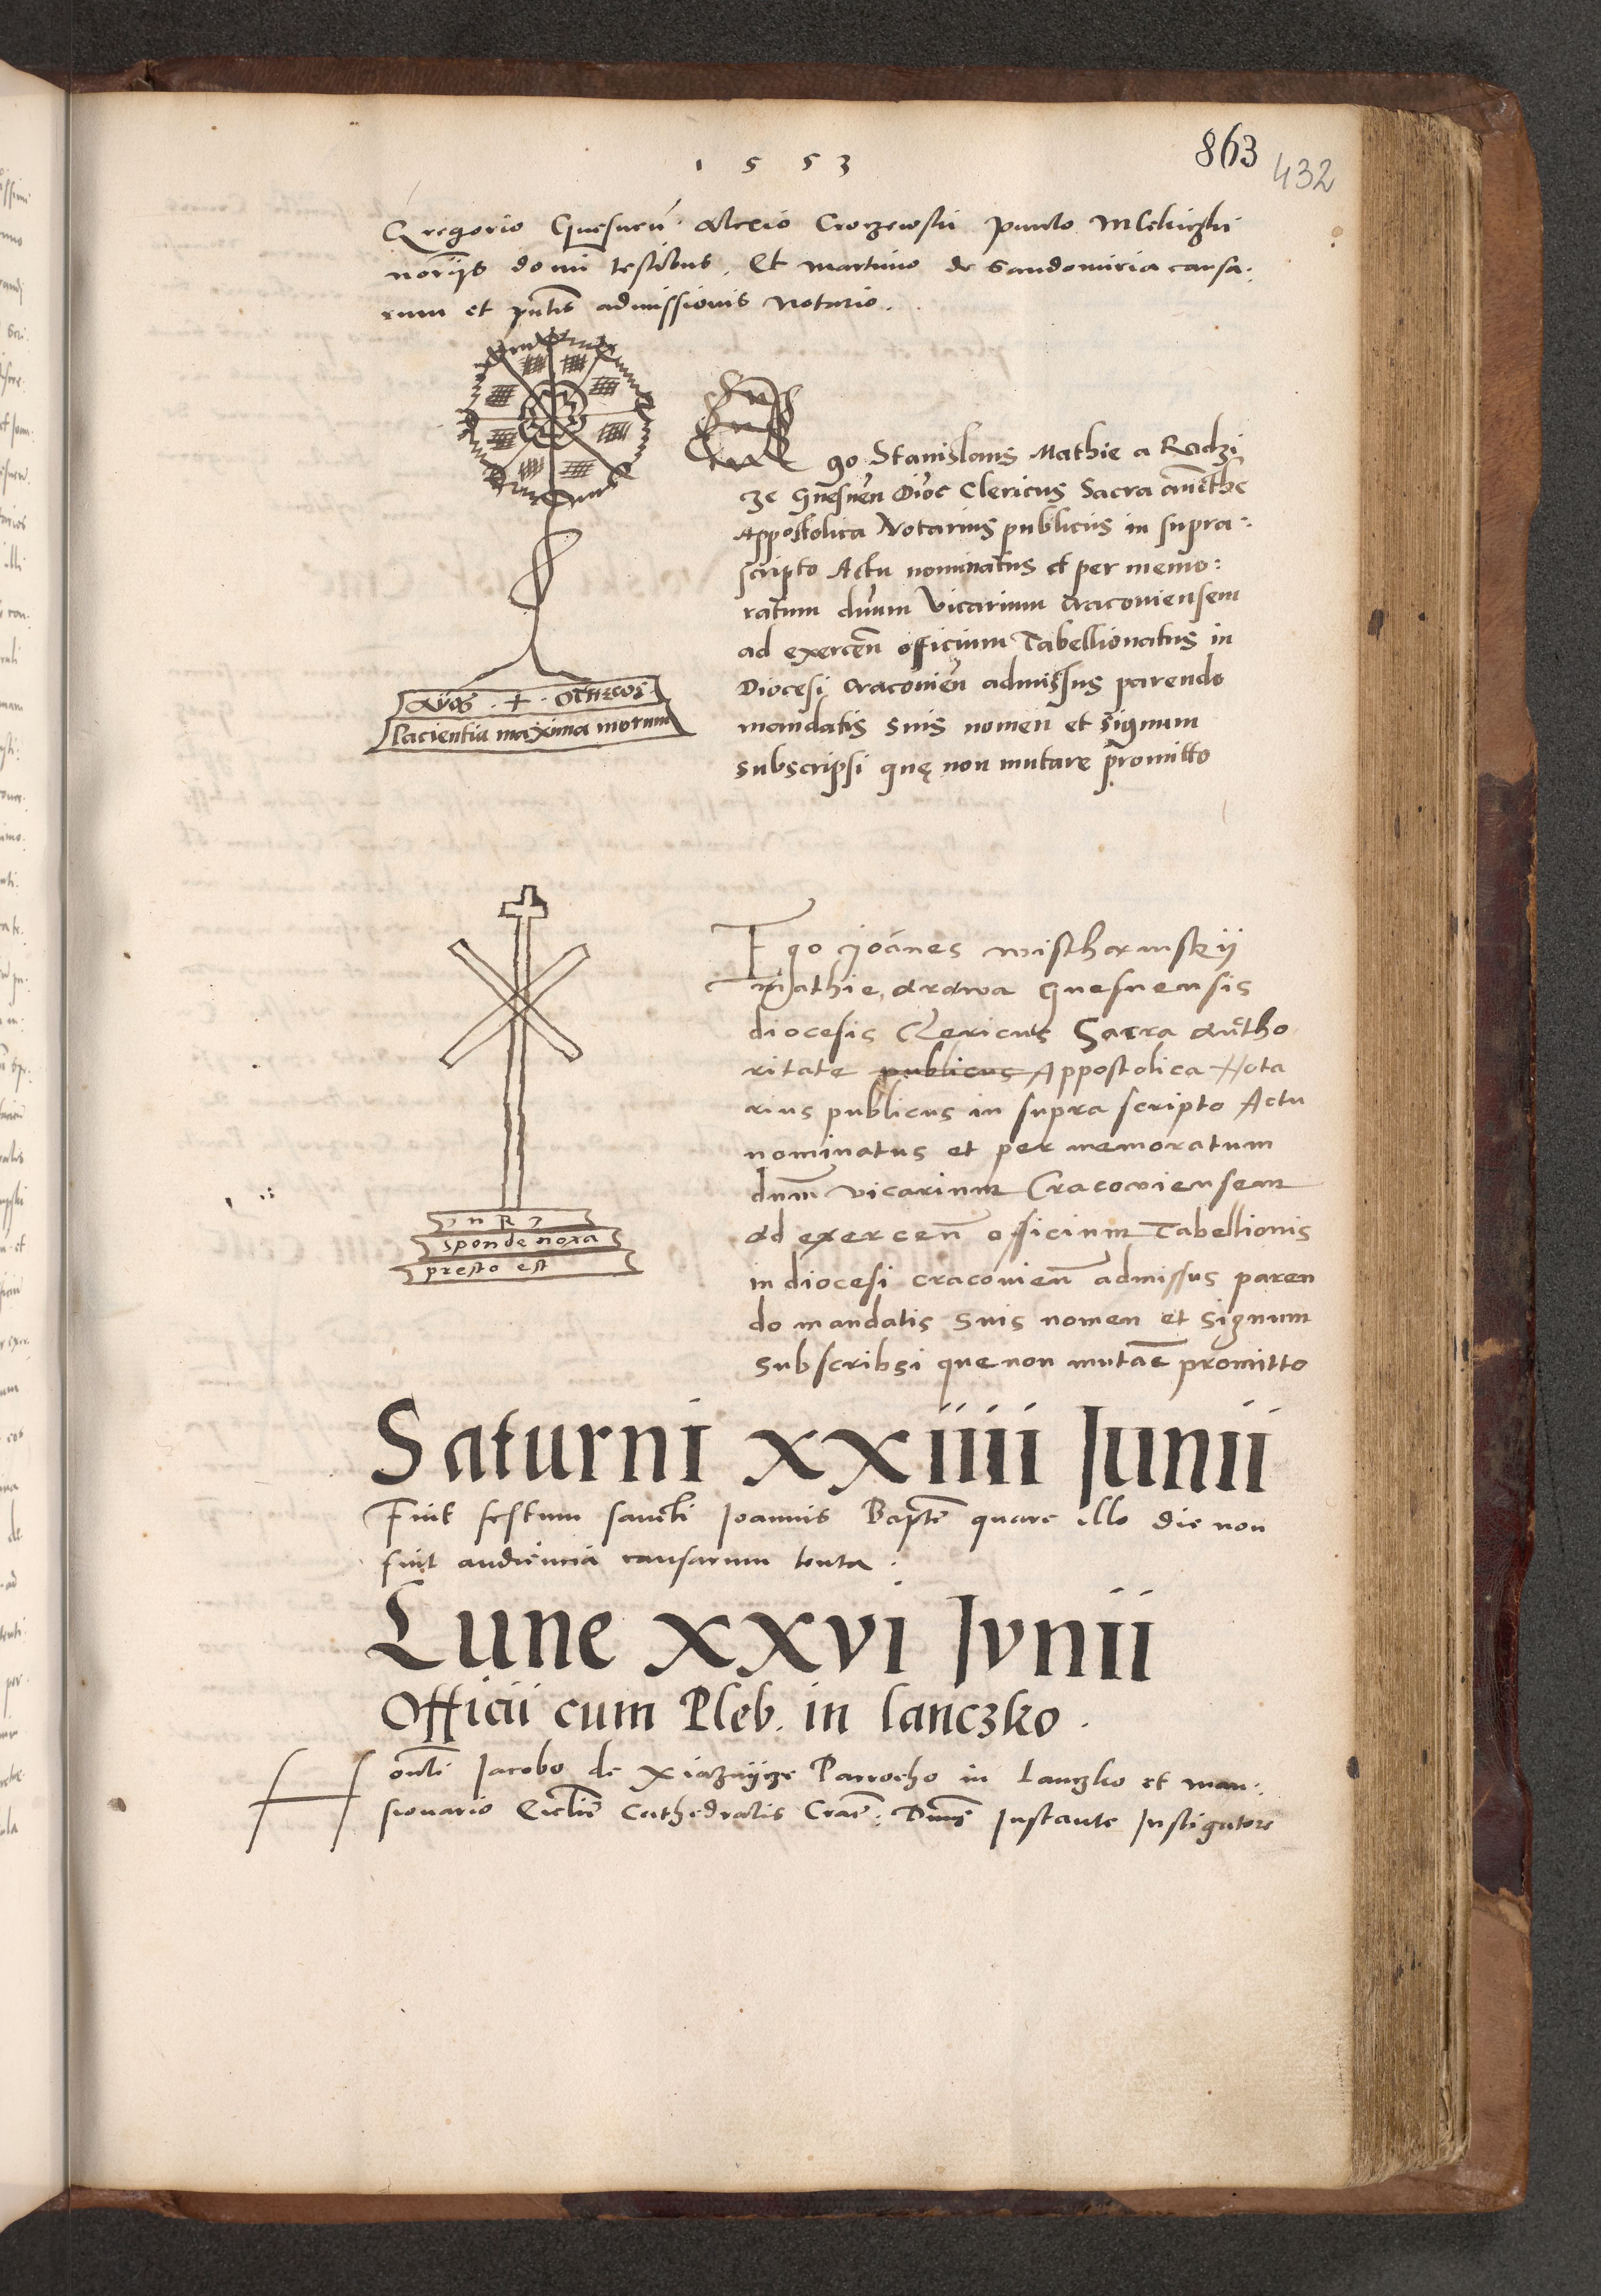 1553
863
432
Gregorio Gnesnen̄ Alexio Croczewski Paulo Mlehiczki
norijs domi testibus. Et martino de Sandomiria causa:
rum et pn̄tis admissionis Notario.
Ego Stanislaus Mathie a Radzi
ze Gnesnen̄ Dioc Clericus Sacra
Appostolica Notarius publicus in supra:
scripto Actu nominatus et per memo:
ratum dn̄um Vicarium Cracoviensem
ad exercen̄ officium Tabellionatus in
Diocesi Cracovien̄ admissus parendo
mandatis suis nomen et signum
subscripsi quę non mutare promitto
Pacientia maxima morum
Ego Joānes
Mathie, arawa Gnesnensis
diocesis Clericus Sacra autho
ritate publicus Appostolica Nota
rius publicus in supra scripto Actu
nominatus et per memoratum
dnm̄ vicarium Cracoviensem
ad exercen̄ officium Tabellionis
in diocesi cracovien̄ admissus paren
do mandatis suis nomen et signum
subscribsi que non mutāe promitto
J n R J
sponde noxa
presto est
Saturni xxiiii Junii
Fuit festum sancti Joannis Bapte quare illo die non
fuit audiencia causarum tenta.
Lune xxvi Jvnii
Officii cum Pleb. in lanczko.
Honli Jacobo de Xiaznycze Parrocho in Lanczko et man:
sionario Ecclie Cathedralis Crac: Dnus Instante Instigatore